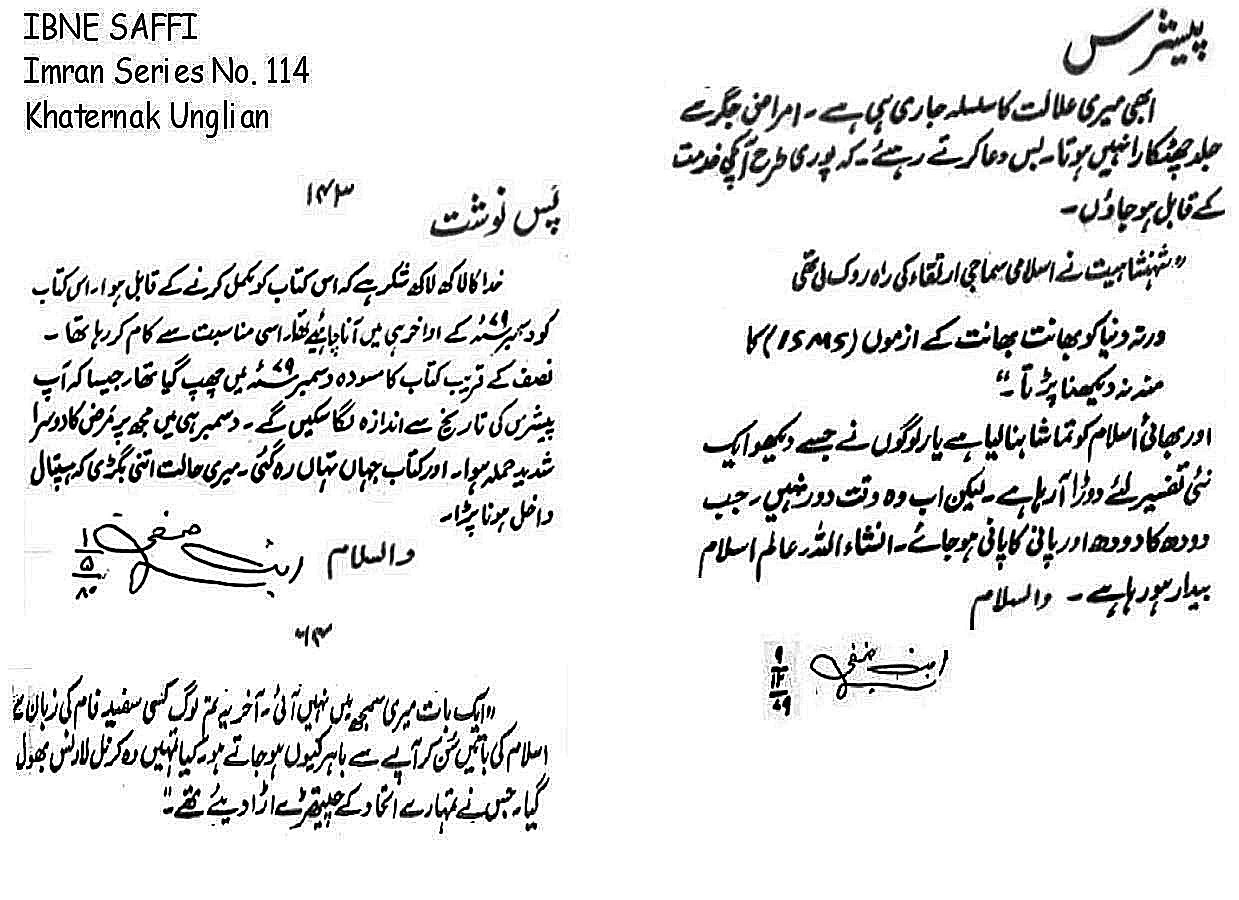 IBNE SAFFI
Imran Series No. 114
Khaternak Unglian
پیشرس
ابھی میری علالت کا سلسلہ جاری ہی ہے۔ امراضِ جگر سے
جلد چھٹکارا نہیں ہوتا۔ بس دعا کرتے رہئے۔ کہ پوری طرح آپکی خدمت
کے قابل ہو جاؤں۔
”شہنشاہیت نے اسلامی سماجی ارتقاء کی راہ روک لی تھی
ورنہ دنیا کو بھانت بھانت کے ازموں (ISMS) کا
منہ نہ دیکھنا پڑتا۔“
اور بھائی اسلام کو تماشا بنا لیا ہے یار لوگوں نے جسے دیکھو ایک
نئی تفسیر لئے دوڑا آ رہا ہے۔ لیکن اب وہ وقت دور نہیں۔ جب
دودھ کا دودھ اور پانی کا پانی ہو جائے۔ انشاء اللہ عالم اسلام
بیدار ہو رہا ہے۔ والسلام
ابن صفی
۹
۱۲
۷۹
۱۴۳
پس نوشت
خدا کا لاکھ لاکھ شکر ہے کہ اس کتاب کو مکمل کرنے کے قابل ہوا۔ اس کتاب
کو دسمبر ۷۹ء کے اواخر ہی میں آنا چاہئیے تھا۔ اسی مناسبت سے کام کر رہا تھا۔
نصف کے قریب کتاب کا مسودہ دسمبر ۷۹ء میں چھپ گیا تھا۔ جیسا کہ آپ
پیشرس کی تاریخ سے اندازہ لگا سکیں گے۔ دسمبر ہی میں مجھ پر مرض کا دوسرا
شدید حملہ ہوا۔ اور کتاب جہاں تہاں رہ گئی۔ میری حالت اتنی بگڑی کہ ہسپتال
داخل ہونا پڑا۔
والسلام ابن صفی
۱
۵
۸۰
”ایک بات میری سمجھ میں نہیں آئی۔ آخر یہ تم لوگ کسی سفید فام کی زبان سے
اسلام کی باتیں سُن کر آپے سے باہر کیوں ہو جاتے ہو۔ کیا تمہیں وہ کرنل لارنس بھول
گیا۔ جس نے تمہارے اتحاد کے چیتھڑے اڑا دیئے تھے۔“